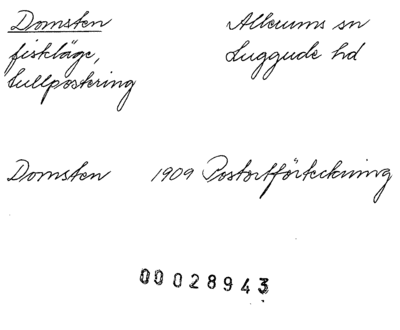 Domsten Allerums sn
fiskläge, Luggude hd
tullpostering
Domsten 1909 Postortförteckning
00028943